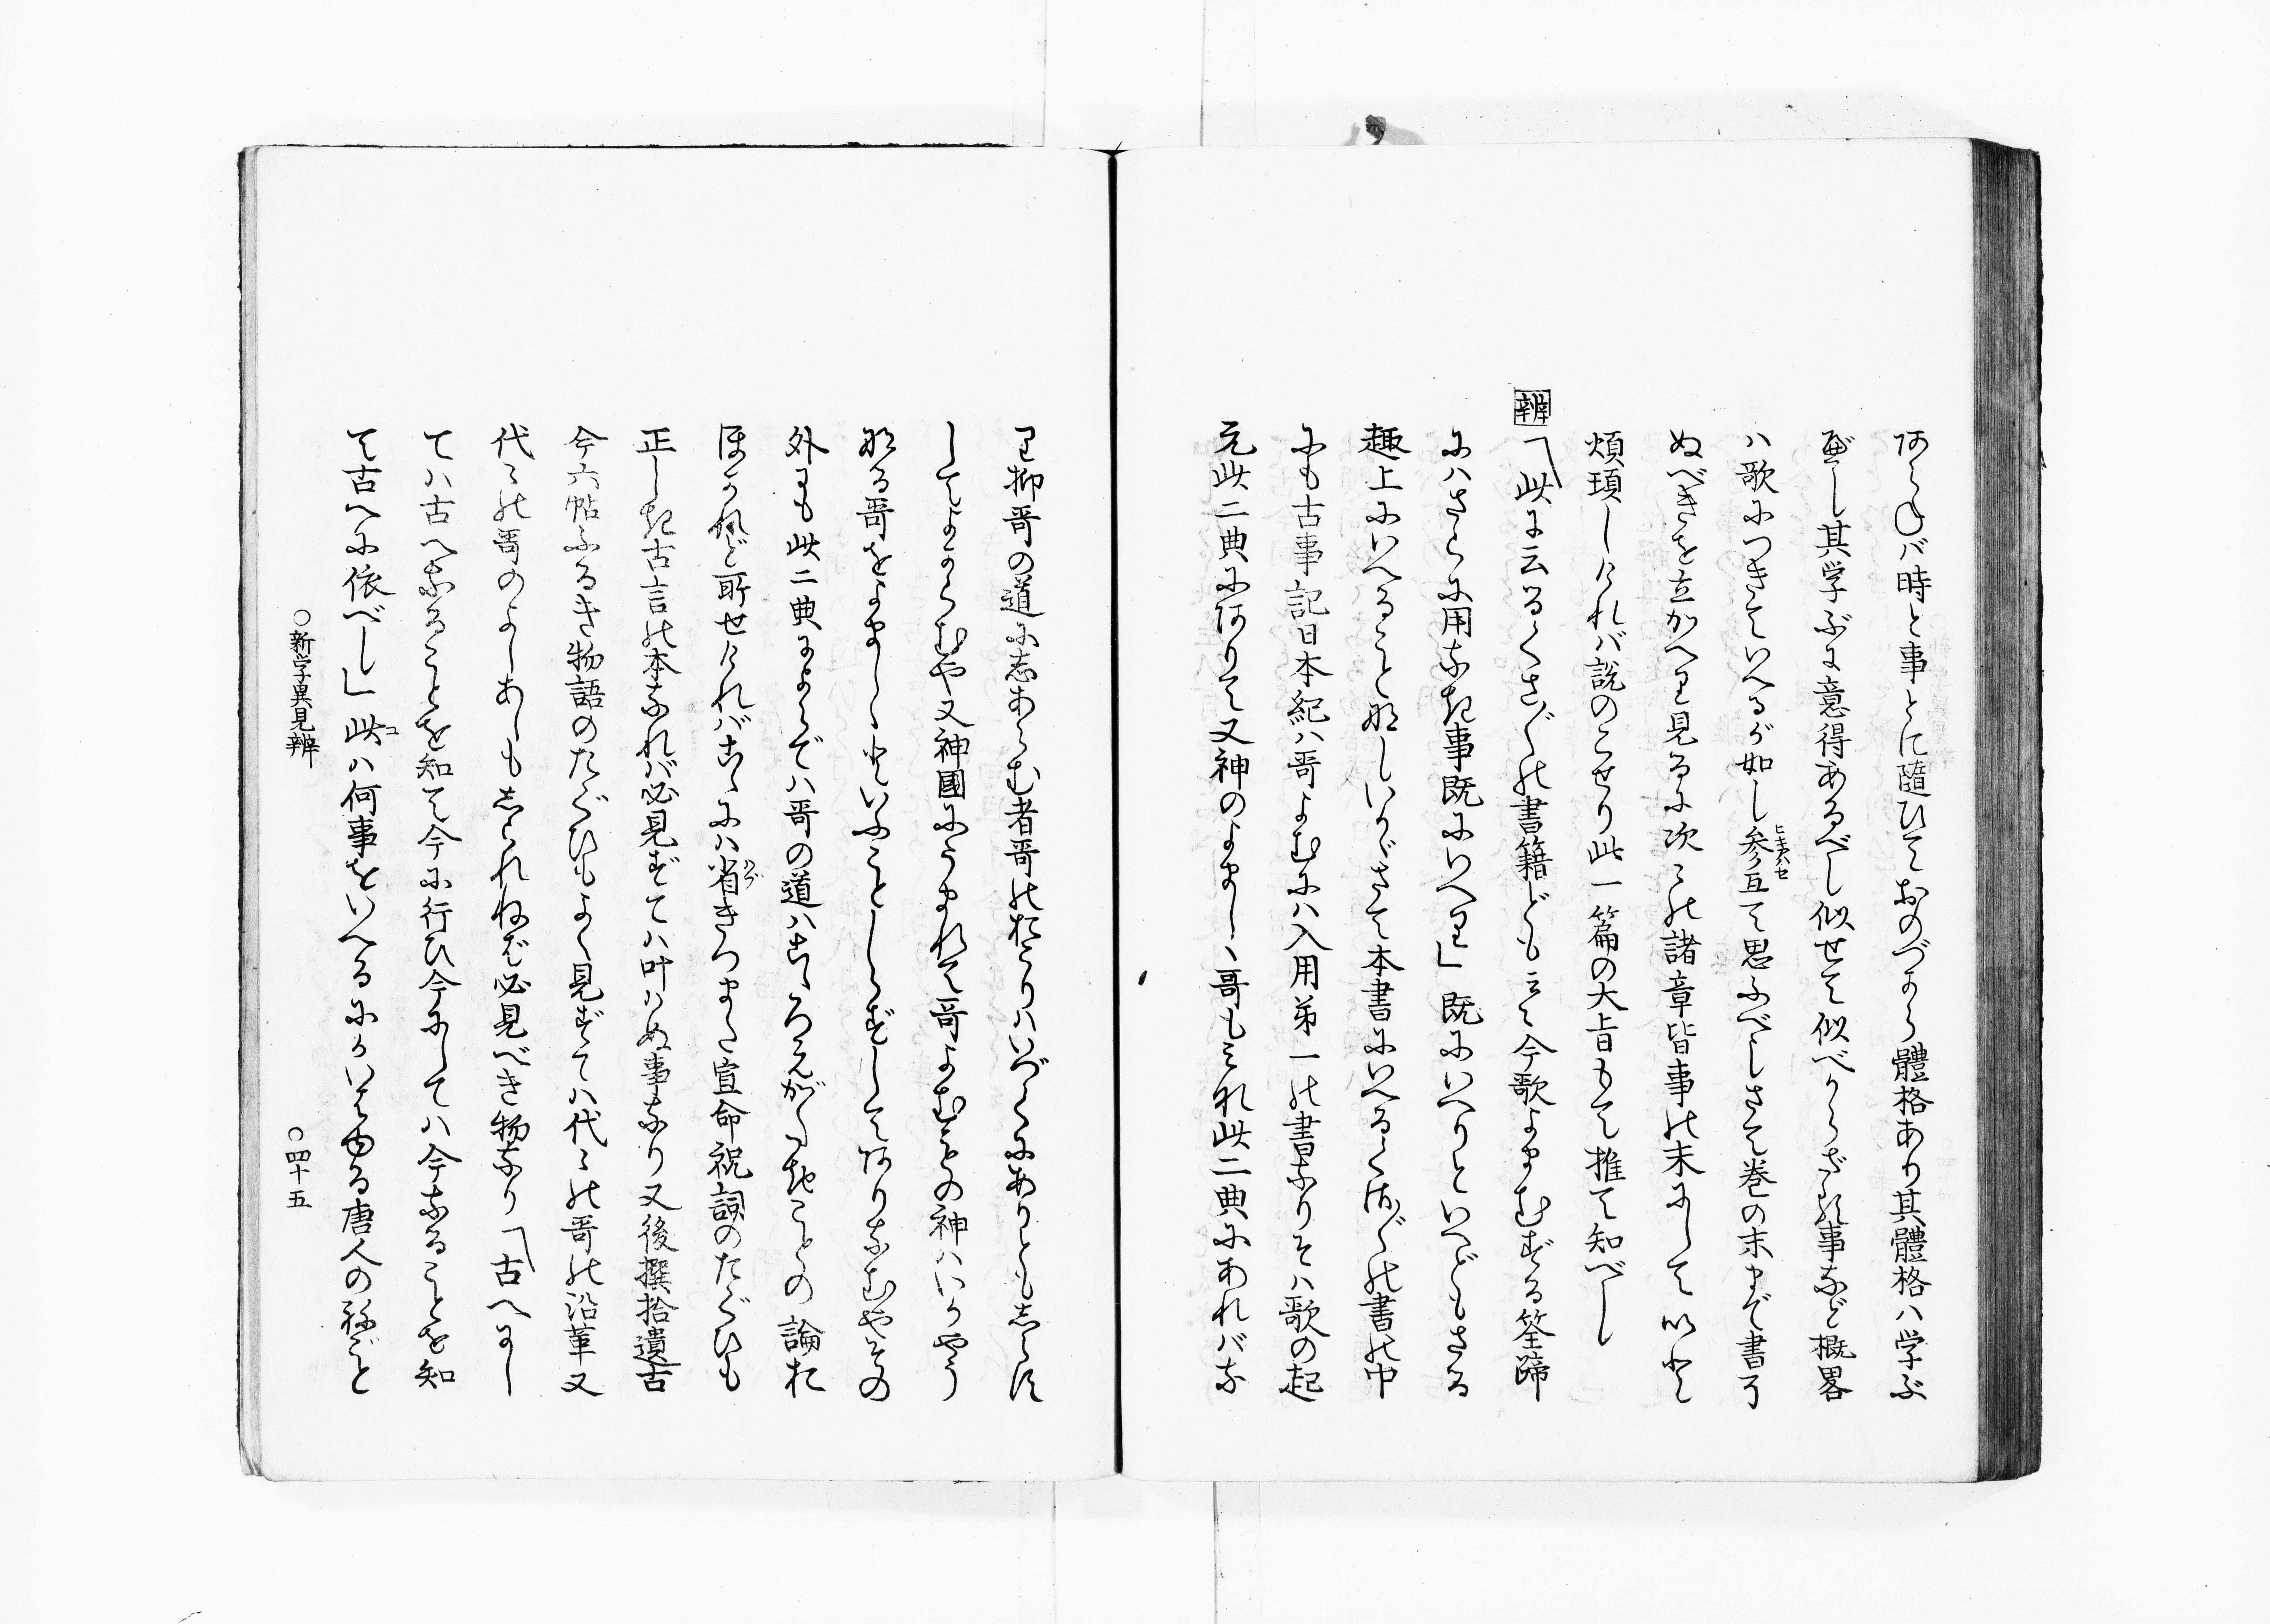 あらねバ時と事とに隨ひておのづから體格あり其體格ハ学ぶ
べし其学ぶに意得あるべし似せて似べからざる事など概畧
ハ歌につきていへるが如し参互て思ふべしさて巻の末まで書了
ぬべきを立かへり見るに次々の諸章皆事の末にして以ては
煩頊しけれバ説のこせり此一篇の大旨もて推て知べし
辨「此に云るくさ〴〵の書籍どもミて今歌よまむずる筌蹄
にハさらに用なき事既にいへり」既にいへりといへどもさる
趣上にいへること無しいかゞさて本書にいへるくだ〴〵の書の中
にも古事記日本紀ハ哥よむにハ入用第一の書なりそハ歌の起
元此二典にありて又神のよまし丶哥もミな此二典にあれバな
り抑哥の道に志あらむ者哥のおこりハいづくにありともしらず
してよからむや又神國にうまれて哥よむものの神ハいかやう
なる哥をよまし丶といふことしらずしてありなむやその
外にも此二典によらでハ哥の道ハこゝろえがたきことの論お
ほかれど所せけれバこゝにハ省きつまた宣命祝詞のたぐひも
正しき古言の本なれバ必見ずてハ叶ハぬ事なり又後撰拾遺古
今六帖ふるき物語のたぐひもよく見ずてハ代々の哥の沿革又
代々の哥のよしあしもしられねば必見べき物なり「古へにし
てハ古へなることを知て今に行ひ今にしてハ今なることを知
て古へに依べし」此ハ何事をいへるにかいはゆる唐人の寝ごと
○新学異見辨 ○四十五